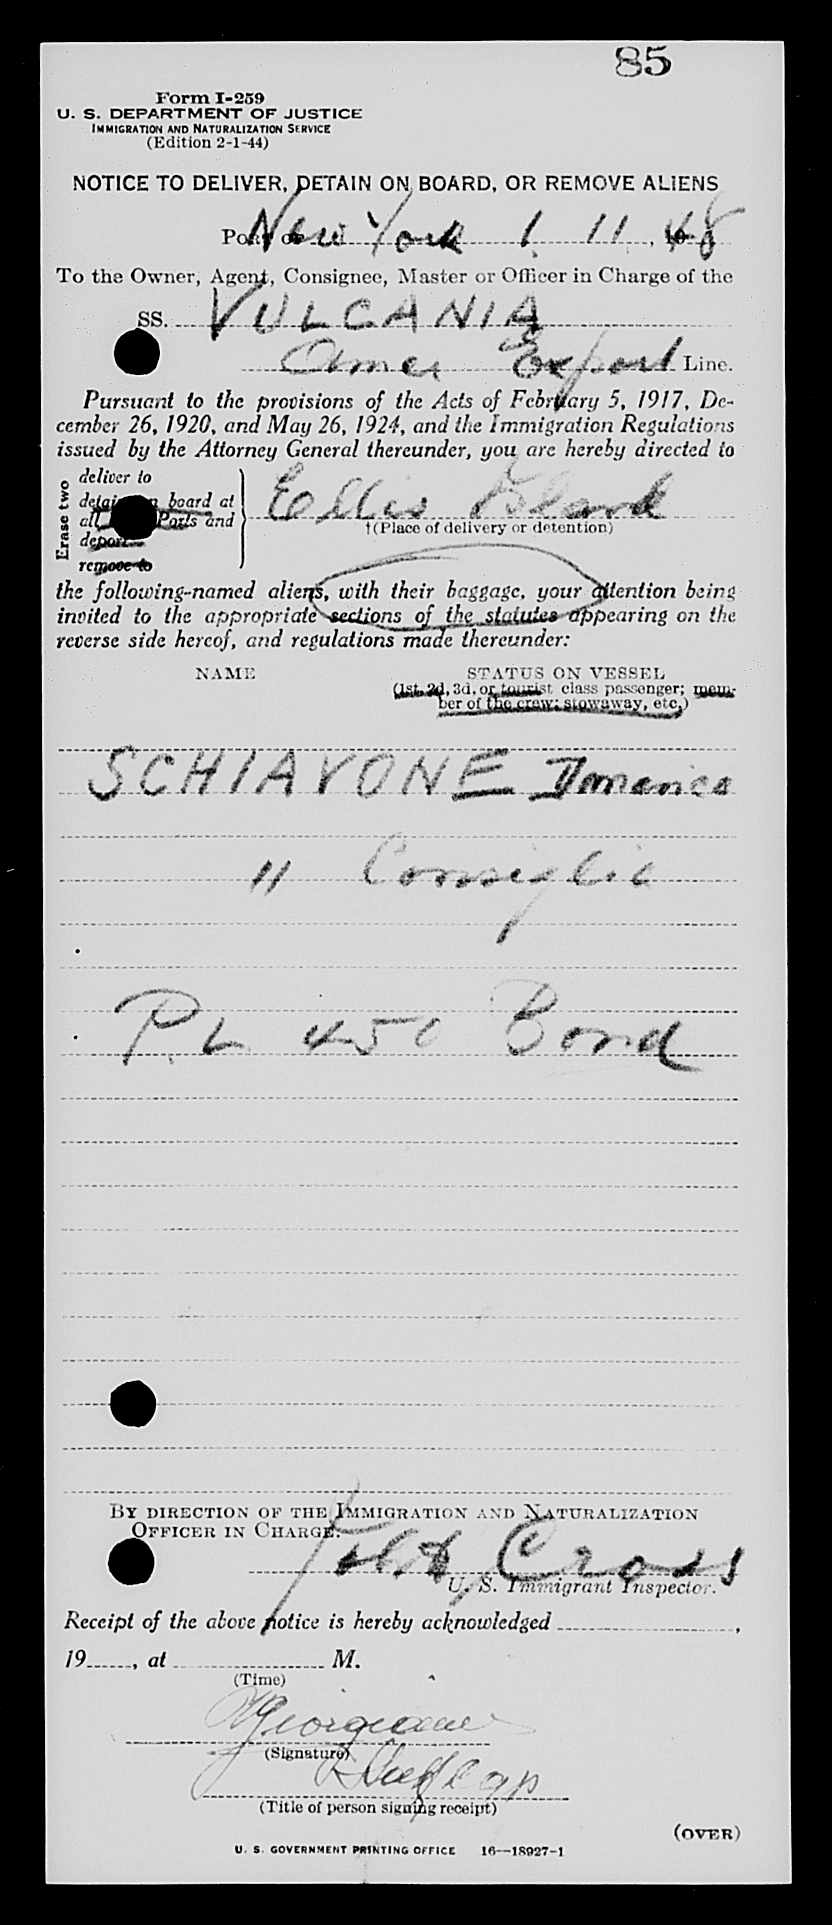 85
Form I-259
U. S. DEPARTMENT OF JUSTICE
IMMIGRATION AND NATURALIZATION SERVICE
(Edition 2-1-44)
NOTICE TO DELIVER, DETAIN ON BOARD, OR REMOVE ALIENS
Port of New York 1 11, 1948
To the Owner, Agent, Consignee, Master or Officer in Charge of the
SS. VULCANIA
Amer Export Line.
Pursuant to the provisions of the Acts of February 5, 1917, De-
cember 26, 1920, and May 26, 1924, and the Immigration Regulations
issued by the Attorney General thereunder, you are hereby directed to
Erase two
deliver to
detain on board at
all Ports and
deport
remove to
Ellis Island
†(Place of delivery or detention)
the following-named aliens, with their baggage, your attention being
invited to the appropriate sections of the statutes appearing on the
reverse side hereof, and regulations made thereunder:
NAME STATUS ON VESSEL
(1st, 2d, 3d, or tourist class passenger; mem-
ber of the crew; stowaway, etc.)
SCHIAVONE Domenica
" Consiglia
P.L 450 Bond
BY DIRECTION OF THE IMMIGRATION AND NATURALIZATION
OFFICER IN CHARGE:
Cross
U. S. Immigrant Inspector.
Receipt of the above notice is hereby acknowledged ,
19 , at M.
(Time)
(Signature)
(Title of person signing receipt)
(OVER)
U. S. GOVERNMENT PRINTING OFFICE 16—18927-1